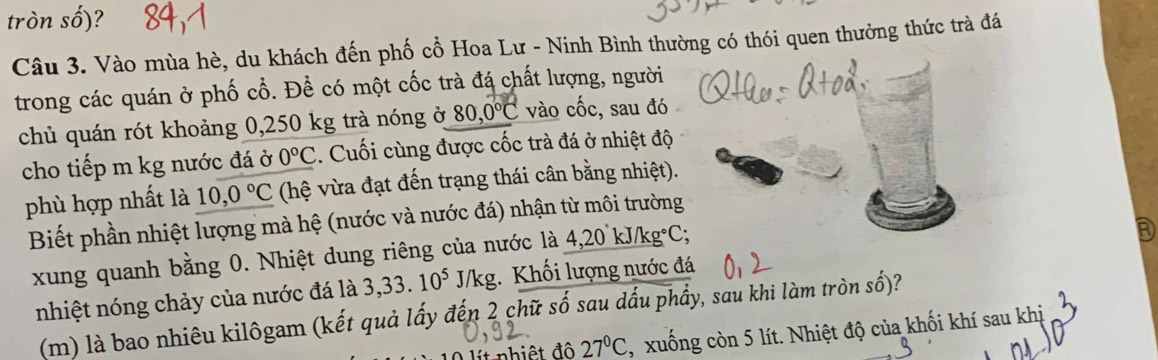 tròn số)? 84,1
Câu 3. Vào mùa hè, du khách đến phố cổ Hoa Lư - Ninh Bình thường có thói quen thưởng thức trà đá
trong các quán ở phố cổ. Để có một cốc trà đá chất lượng, người
chủ quán rót khoảng 0,250 kg trà nóng ở 80,0°C vào cốc, sau đó
cho tiếp m kg nước đá ở 0°C. Cuối cùng được cốc trà đá ở nhiệt độ
phù hợp nhất là 10,0 °C (hệ vừa đạt đến trạng thái cân bằng nhiệt).
Biết phần nhiệt lượng mà hệ (nước và nước đá) nhận từ môi trường
xung quanh bằng 0. Nhiệt dung riêng của nước là 4,20 kJ/kg°C;
nhiệt nóng chảy của nước đá là 3,33. 10⁵ J/kg. Khối lượng nước đá 0,2
(m) là bao nhiêu kilôgam (kết quả lấy đến 2 chữ số sau dấu phẩy, sau khi làm tròn số)?
0,92
10 lít nhiệt độ 27⁰C, xuống còn 5 lít. Nhiệt độ của khối khí sau khi